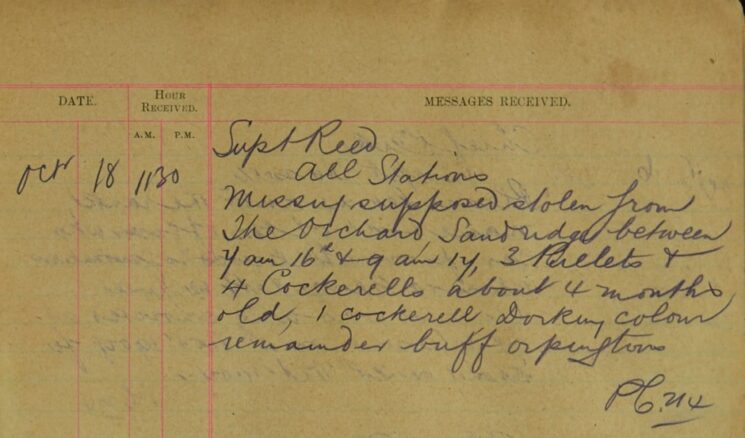 DATE.
HOUR RECEIVED.
MESSAGES RECEIVED.
A.M. P.M.
Oct 18 1130
Supt Reed
All Stations
Missing supposed stolen from
The Orchard Sandridge between
7 am 16th & 9 am 17, 3 Pullets &
4 Cockerells about 4 months
old, 1 cockerell Dorking colour
remainder buff orpingtons
P.C.